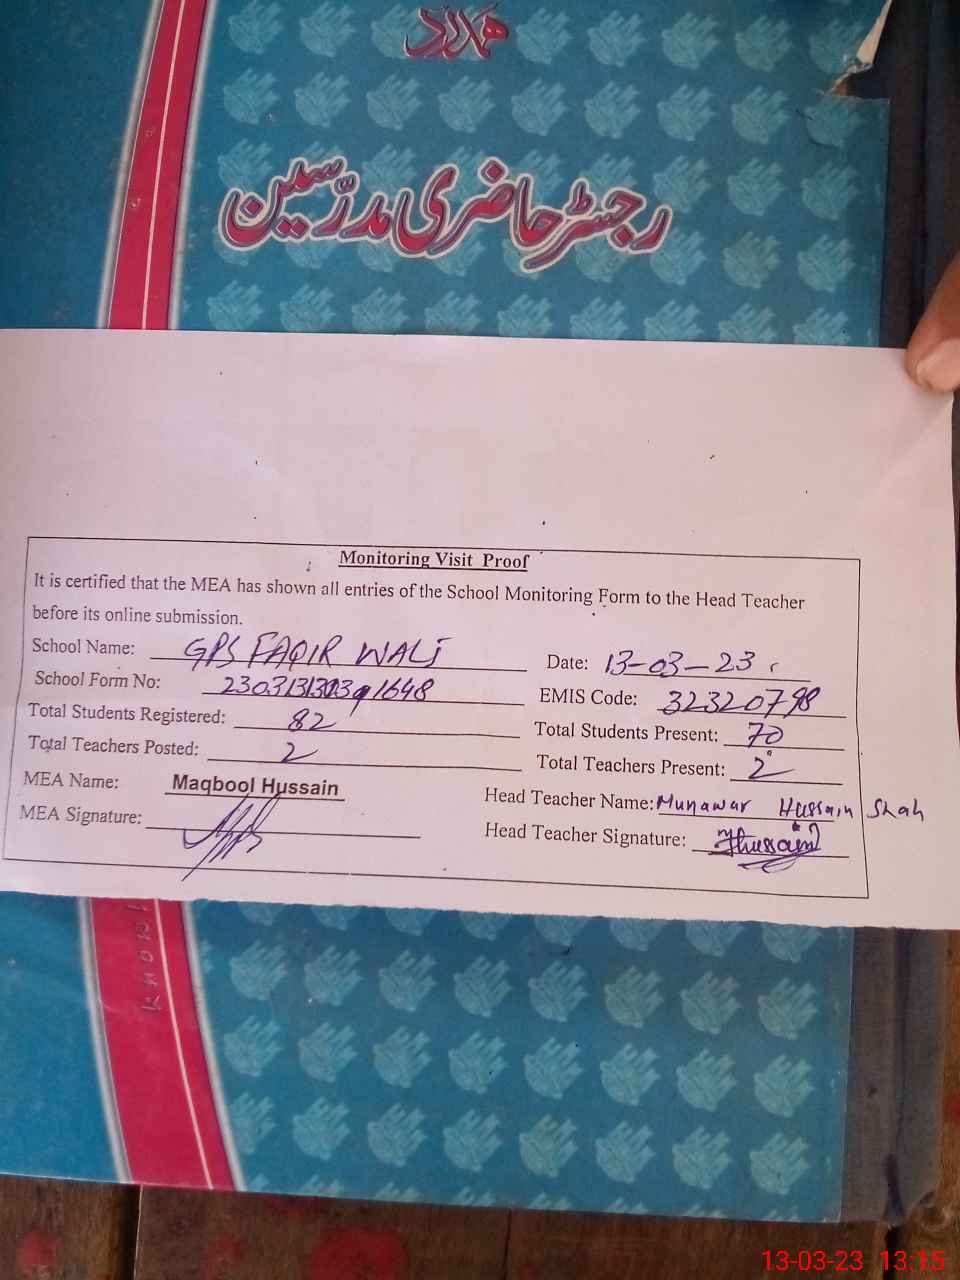 ہمدرد
رجسٹر حاضری مدرّسین
Monitoring Visit Proof
It is certified that the MEA has shown all entries of the School Monitoring Form to the Head Teacher
before its online submission.
School Name: GPS FAQIR WALI Date: 13-03-23
School Form No: EMIS Code: 32320798
Total Students Registered: 82 Total Students Present: 70
Total Teachers Posted: 2 Total Teachers Present: 2
MEA Name: Maqbool Hussain Head Teacher Name: Munawar Hussain Shah
MEA Signature: Head Teacher Signature: Hussain
13-03-23 13:15